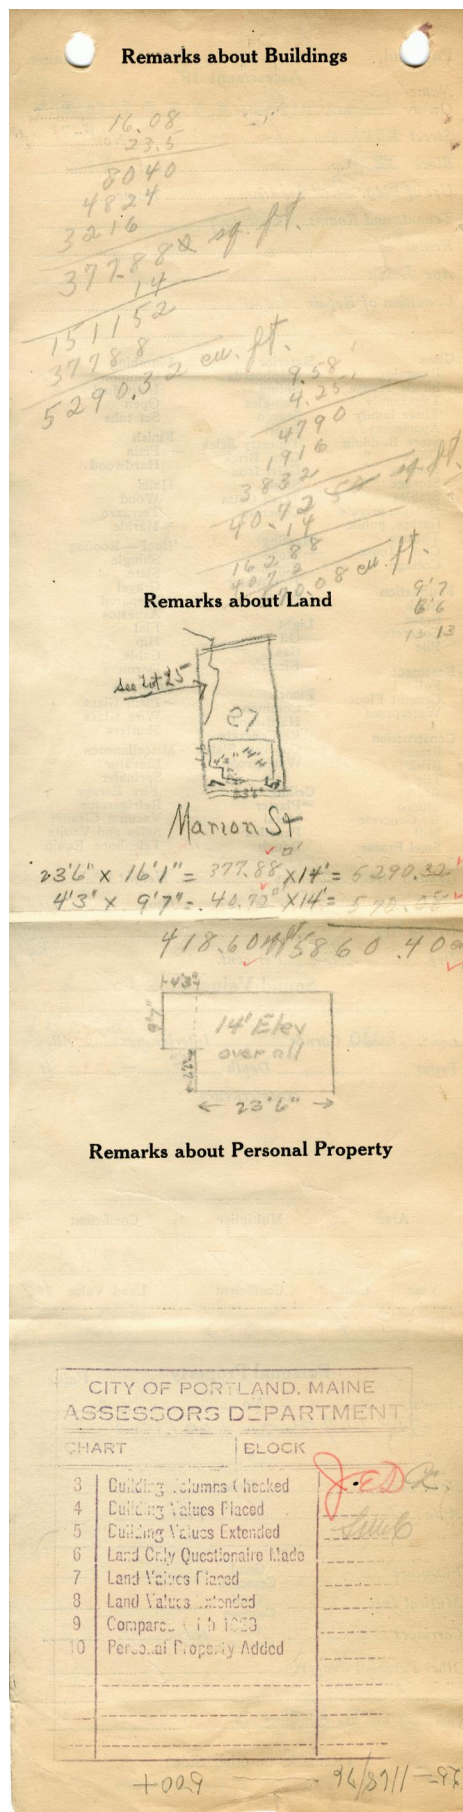 Remarks about Buildings
16.08
23.5
8040
4824
3216
377.88 sq. ft.
14
151152
37788
5290.32 cu. ft.
9.58
4.25
4790
1916
3832
40.72 sq. ft.
.14
16288
4072
cu. ft.
Remarks about Land
9'7
6'6
See Lot 25
Marion St
23'6" × 16'1" = 377.88 □' ×14' = 5290.32
4'3" × 9'7" = 40.72 □" ×14' =
418.60 5860.40
4'3"
9'7"
14' Elev
over all
← 23'6" →
Remarks about Personal Property
CITY OF PORTLAND, MAINE
ASSESSORS DEPARTMENT
CHART BLOCK
3 Building Columns Checked
4 Building Values Placed
5 Building Values Extended
6 Land Only Questionaire Made
7 Land Values Placed
8 Land Values Extended
9 Compared
10 Personal Property Added